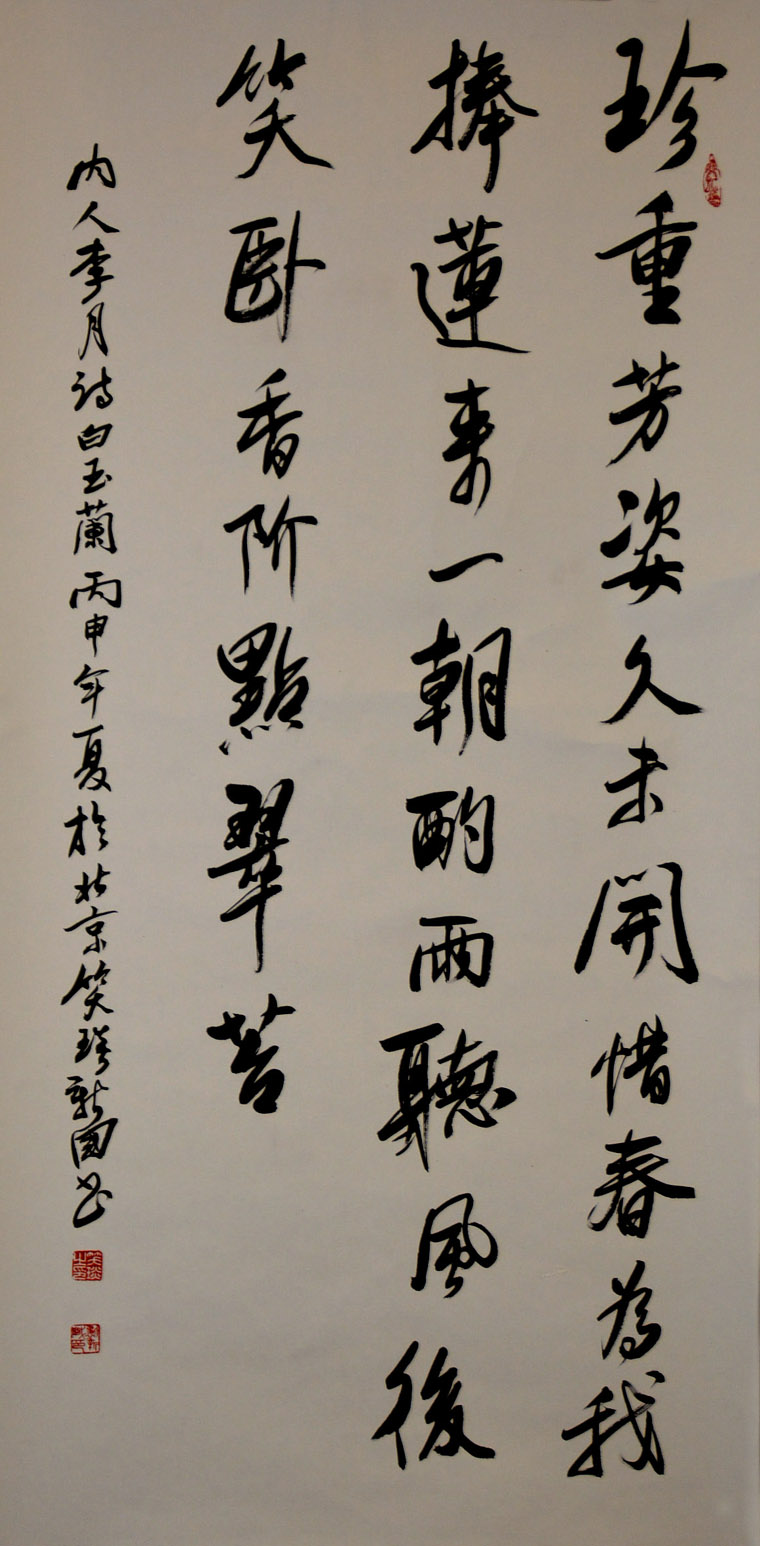 珍重芳姿久未開惜春為我
捧蓮來一朝酌雨聽風後
笑臥香階點翠苔
内人李月詩白玉蘭丙申年夏於北京笑琰新國書